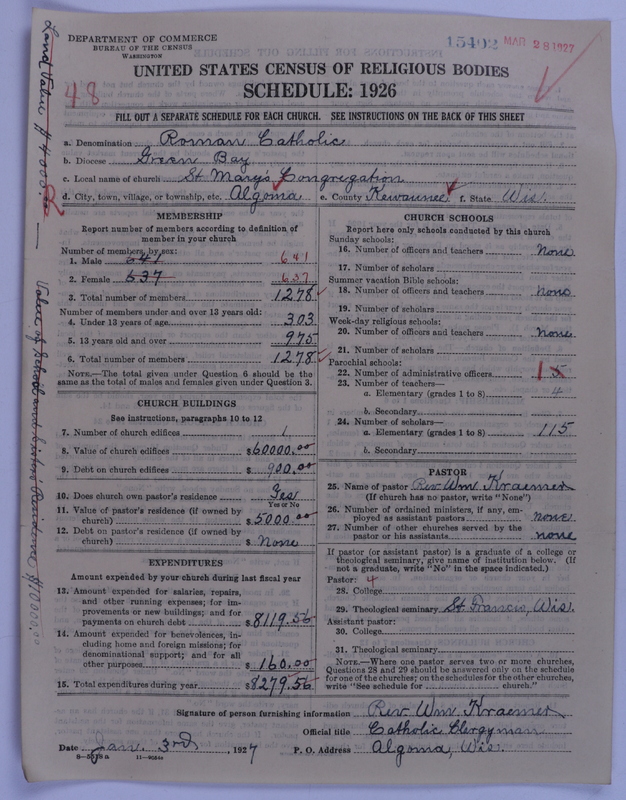 DEPARTMENT OF COMMERCE
BUREAU OF THE CENSUS
WASHINGTON
15402 MAR 28 1927
UNITED STATES CENSUS OF RELIGIOUS BODIES
SCHEDULE: 1926
48
FILL OUT A SEPARATE SCHEDULE FOR EACH CHURCH. SEE INSTRUCTIONS ON THE BACK OF THIS SHEET
a. Denomination Roman Catholic
b. Diocese Green Bay
c. Local name of church St Mary's Congregation
d. City, town, village, or township, etc. Algoma e. County Kewaunee f. State Wis.
MEMBERSHIP
Report number of members according to definition of
member in your church
Number of members by sex:
1. Male 641 641
2. Female 637 637
3. Total number of members 1278
Number of members under and over 13 years old:
4. Under 13 years of age 303
5. 13 years old and over 975
6. Total number of members 1278
NOTE.—The total given under Question 6 should be
same as the total of males and females given under Question 3.
CHURCH BUILDINGS
See instructions, paragraphs 10 to 12
7. Number of church edifices 1
8. Value of church edifices $60000.00
9. Debt on church edifices $ 900.00
10. Does church own pastor's residence Yes
Yes or No
11. Value of pastor's residence (if owned by
church) $5000.00
12. Debt on pastor's residence (if owned by
church) $ None
EXPENDITURES
Amount expended by your church during last fiscal year
13. Amount expended for salaries, repairs,
and other running expenses; for im-
provements or new buildings; and for
payments on church debt $8119.56
14. Amount expended for benevolences, in-
cluding home and foreign missions; for
denominational support; and for all
other purposes $ 160.00
15. Total expenditures during year $8279.56
CHURCH SCHOOLS
Report here only schools conducted by this church
Sunday schools:
16. Number of officers and teachers None
17. Number of scholars
Summer vacation Bible schools:
18. Number of officers and teachers None
19. Number of scholars
Week-day religious schools:
20. Number of officers and teachers None
21. Number of scholars
Parochial schools:
22. Number of administrative officers 1
23. Number of teachers—
a. Elementary (grades 1 to 8) 4
b. Secondary
24. Number of scholars—
a. Elementary (grades 1 to 8) 115
b. Secondary
PASTOR
25. Name of pastor Rev Wm Kraemer
(If church has no pastor, write "None")
26. Number of ordained ministers, if any, em-
ployed as assistant pastors none
27. Number of other churches served by the
pastor or his assistants none
If pastor (or assistant pastor) is a graduate of a college or
theological seminary, give name of institution below. (If
not a graduate, write "No" in the space indicated.)
Pastor: 4
28. College
29. Theological seminary St Francis, Wis.
Assistant pastor:
30. College
31. Theological seminary
NOTE.—Where one pastor serves two or more churches,
Questions 28 and 29 should be answered only on the schedule
for one of the churches; on the schedules for the other churches,
write "See schedule for church."
Signature of person furnishing information Rev Wm Kraemer
Official title Catholic Clergyman
Date Jan. 3rd, 1927 P. O. Address Algoma, Wis.
8—5518a 11—9024a
Land Value $4000.00
Value of School and Sisters' Residence $10000.00